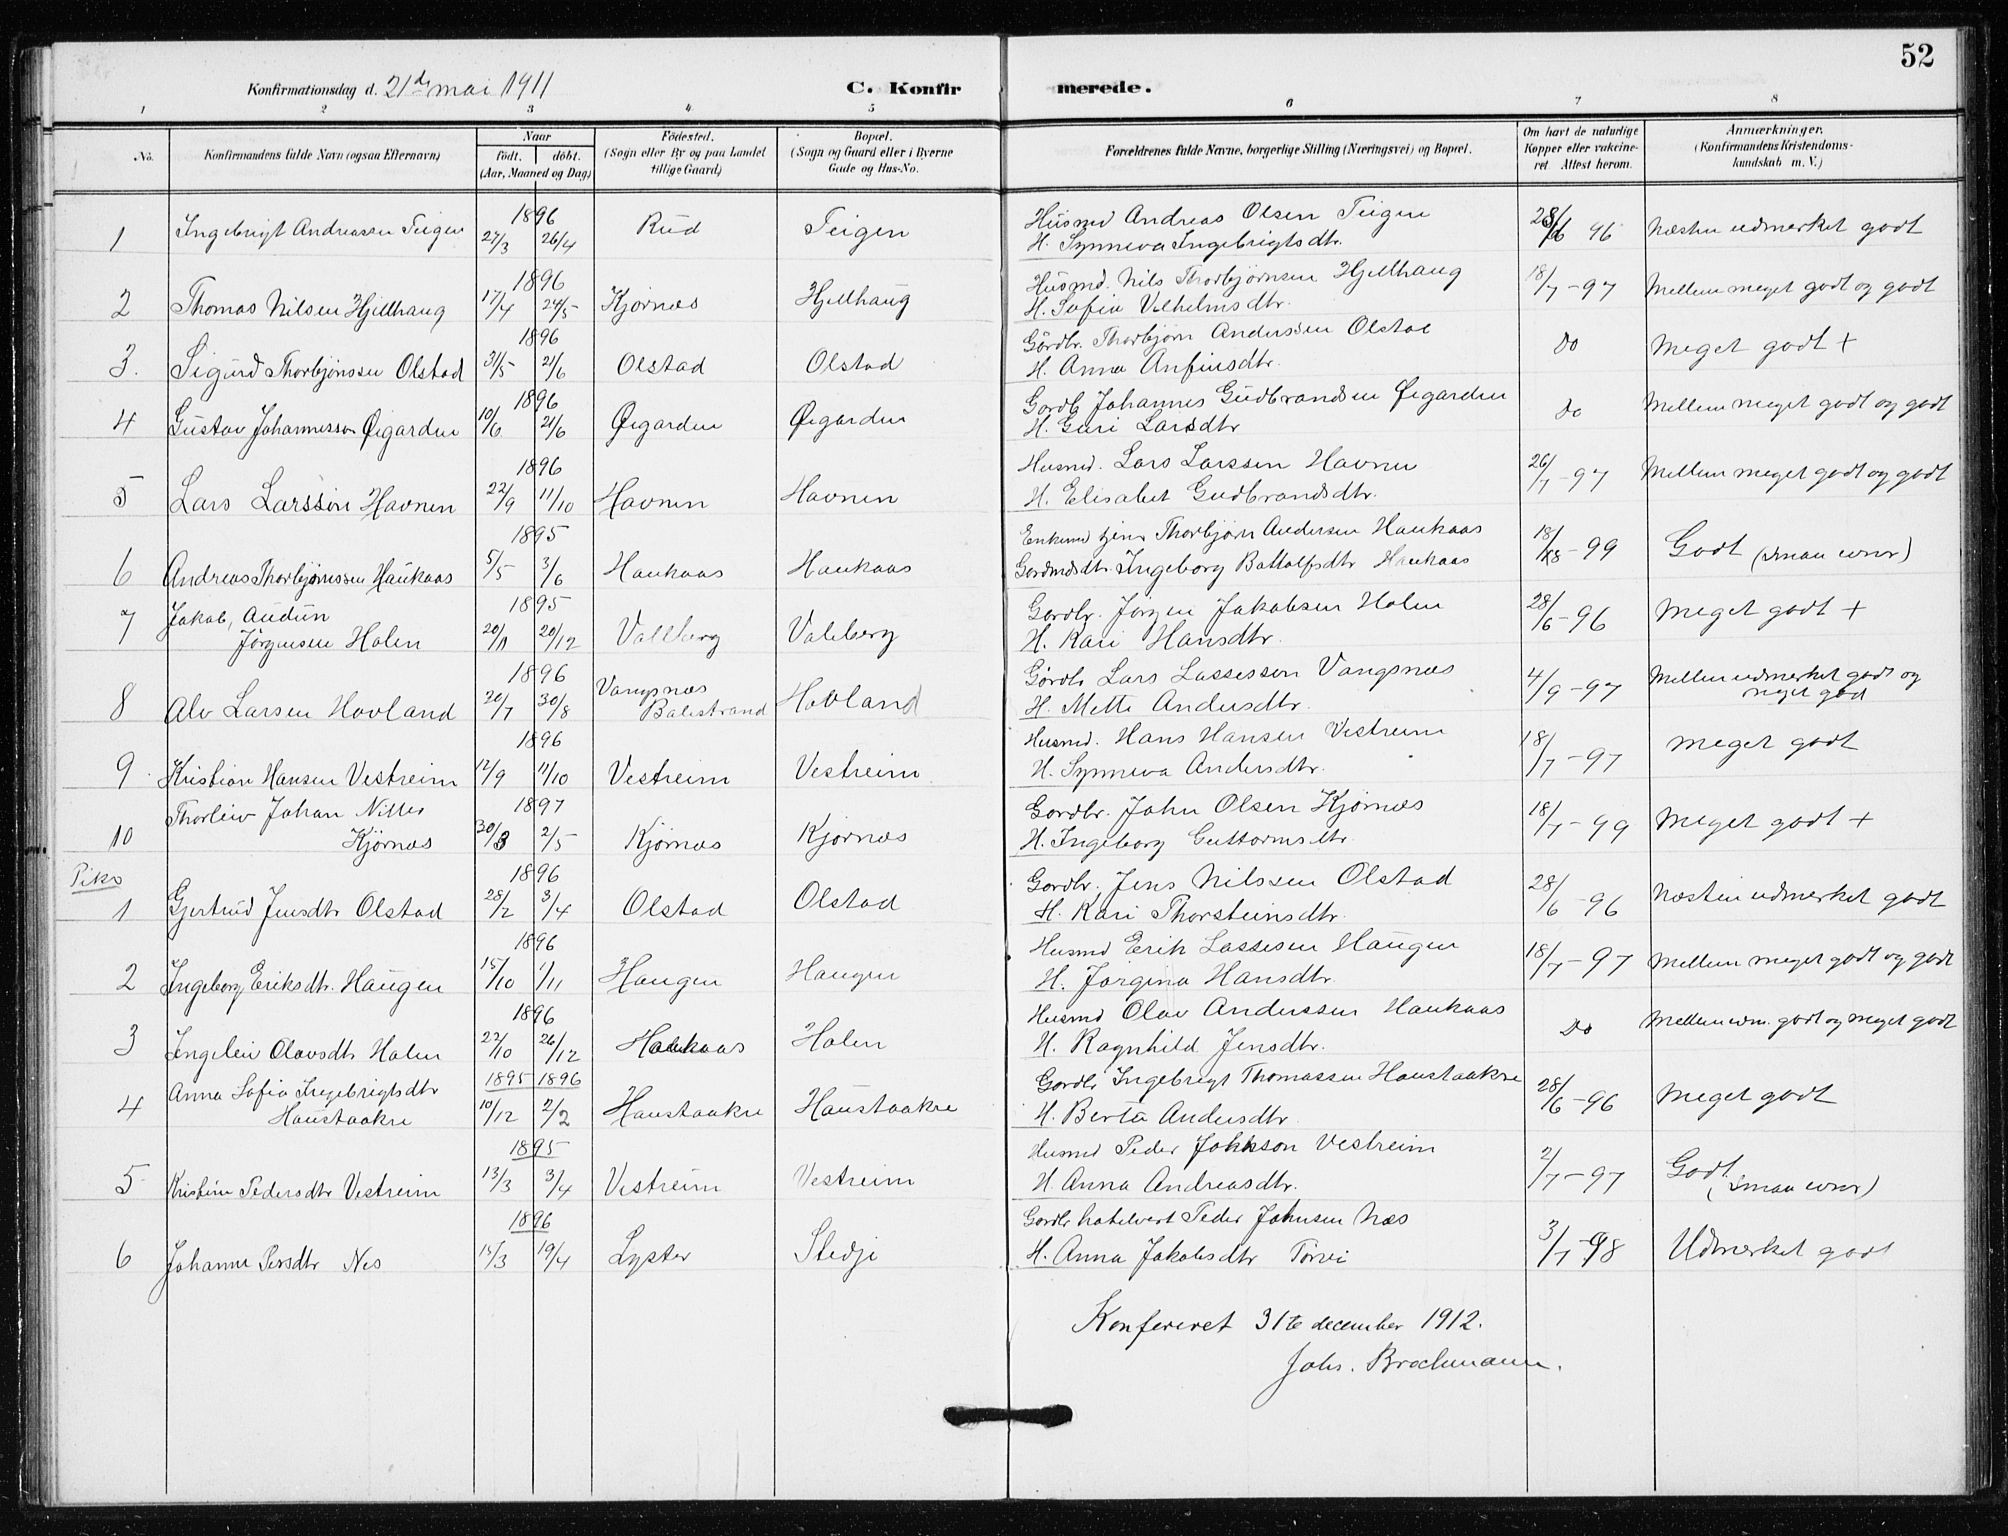 52
Konfirmationsdag d. 21de mai 1911 C. Konfir merede.
1 2 3 4 5 6 7 8
No. Konfirmandens fulde Navn (ogsaa Efternavn)
Naar
født. døbt.
(Aar, Maaned og Dag)
Fødested.
(Sogn eller By og paa Landet
tillige Gaard)
Bopæl.
(Sogn og Gaard eller i Byerne
Gade og Hus-No.
Forældrenes fulde Navne, borgerlige Stilling (Næringsvei) og Bopæl.
Om havt de naturlige
Kopper eller vakcine-
ret. Attest herom.
Anmærkninger.
(Konfirmandens Kristendoms-
kundskab m. V.)
1896 Husmd Andreas Olsen Teigen
1 Ingebrigt Andreassen Teigen 27/3 26/4 Rud Teigen H. Synneva Ingebrigtsdtr. 28/6 96 Næsten udmerket godt
1896 Husmd. Nils Thorbjørnsen Hjellhaug
2 Thomas Nilsen Hjellhaug 17/4 24/5 Kjørnæs Hjellhaug H. Sofia Vilhelmsdtr. 18/7-97 Mellem meget godt og godt
1896 Gårdbr. Thorbjørn Anderssen Olstad
3. Sigurd Thorbjørnssen Olstad 31/5 21/6 Olstad Olstad H. Anna Anfinsdtr. Do Meget godt +
1896 Gardb. Johannes Gudbrandsen Øigarden
4 Gustav Johannessen Øigarden 10/6 21/6 Øigarden Øigarden H. Guri Larsdtr Do Mellem meget godt og godt
1896 Husmd. Lars Larssen Havnen
5 Lars Larssøn Havnen 22/9 11/10 Havnen Havnen H. Elisabet Gudbrandsdtr. 26/7-97 Mellem meget godt og godt
1895 Enkemd Thorbjørn Andersen Haukaas
6 Andreas Thorbjørnssen Haukaas 5/5 3/6 Haukaas Haukaas Gardmdsdtr. Ingeborg Battolfsdtr Haukaas 18/8-99 Godt (smaa evner)
7 Jakob, Audun 1895 Gardbr. Jørgen Jakobsen Holen
Jørgensen Holen 20/11 20/12 Valeberg Valeberg H. Kari Hansdtr. 28/6-96 Meget godt +
1896 Vangsnæs Gårdbr Lars Lassesson Vangsnæs Mellem udmerket godt og
8 Alv Larsen Hovland 20/7 30/8 Balestrand Hovland H. Mette Andersdtr. 4/9-97 meget god
1896 Husmd. Hans Hansen Vestreim
9 Kristian Hansen Vestreim 12/9 11/10 Vestreim Vestreim H. Synneva Andersdtr. 18/7-97 Meget godt
Thorleiv Johan Nitter 1897 Gardbr. John Olsen Kjørnæs
10 Kjørnæs 30/3 2/5 Kjørnæs Kjørnæs H. Ingeborg Guttormsdtr. 18/7-99 Meget godt +
Piker 1896 Gardbr. Jens Nilssen Olstad
1 Gjertrud Jensdtr Olstad 28/2 3/4 Olstad Olstad H. Kari Thorsteinsdtr. 28/6-96 Næsten udmerket godt
1896 Husmd Erik Lassesen Haugen
2 Ingeborg Eriksdtr. Haugen 15/10 1/11 Haugen Haugen H. Jørgina Hansdtr. 18/7-97 Mellem meget godt og godt
1896 Husmd Olav Anderssen Haukaas
3 Ingeleiv Olavsdtr Holen 22/10 26/12 Haukaas Holen H. Ragnhild Jensdtr. Do Mellem udm. godt og meget godt
Anna Sofia Ingebrigtsdtr 1895 1896 Gardbr Ingebrigt Thomassen Haustaakre
4 Haustaakre 10/12 2/2 Haustaakre Haustaakre H. Berta Andersdtr. 28/6-96 Meget godt
1895 Husmd Peder Johnson Vestreim
5 Kristine Pedersdtr Vestreim 13/3 3/4 Vestreim Vestreim H. Anna Andreasdtr. 2/7-97 Godt (smaa evner)
1896 Gardbr Peder Johnsen Næs
6 Johanne Persdtr Nes 15/3 19/4 Lyster Stedje H. Anna Jakobsdtr Tørvi 3/7-98 Udmerket godt
Konfereret 31te december 1912.
Johs. Brochmann.